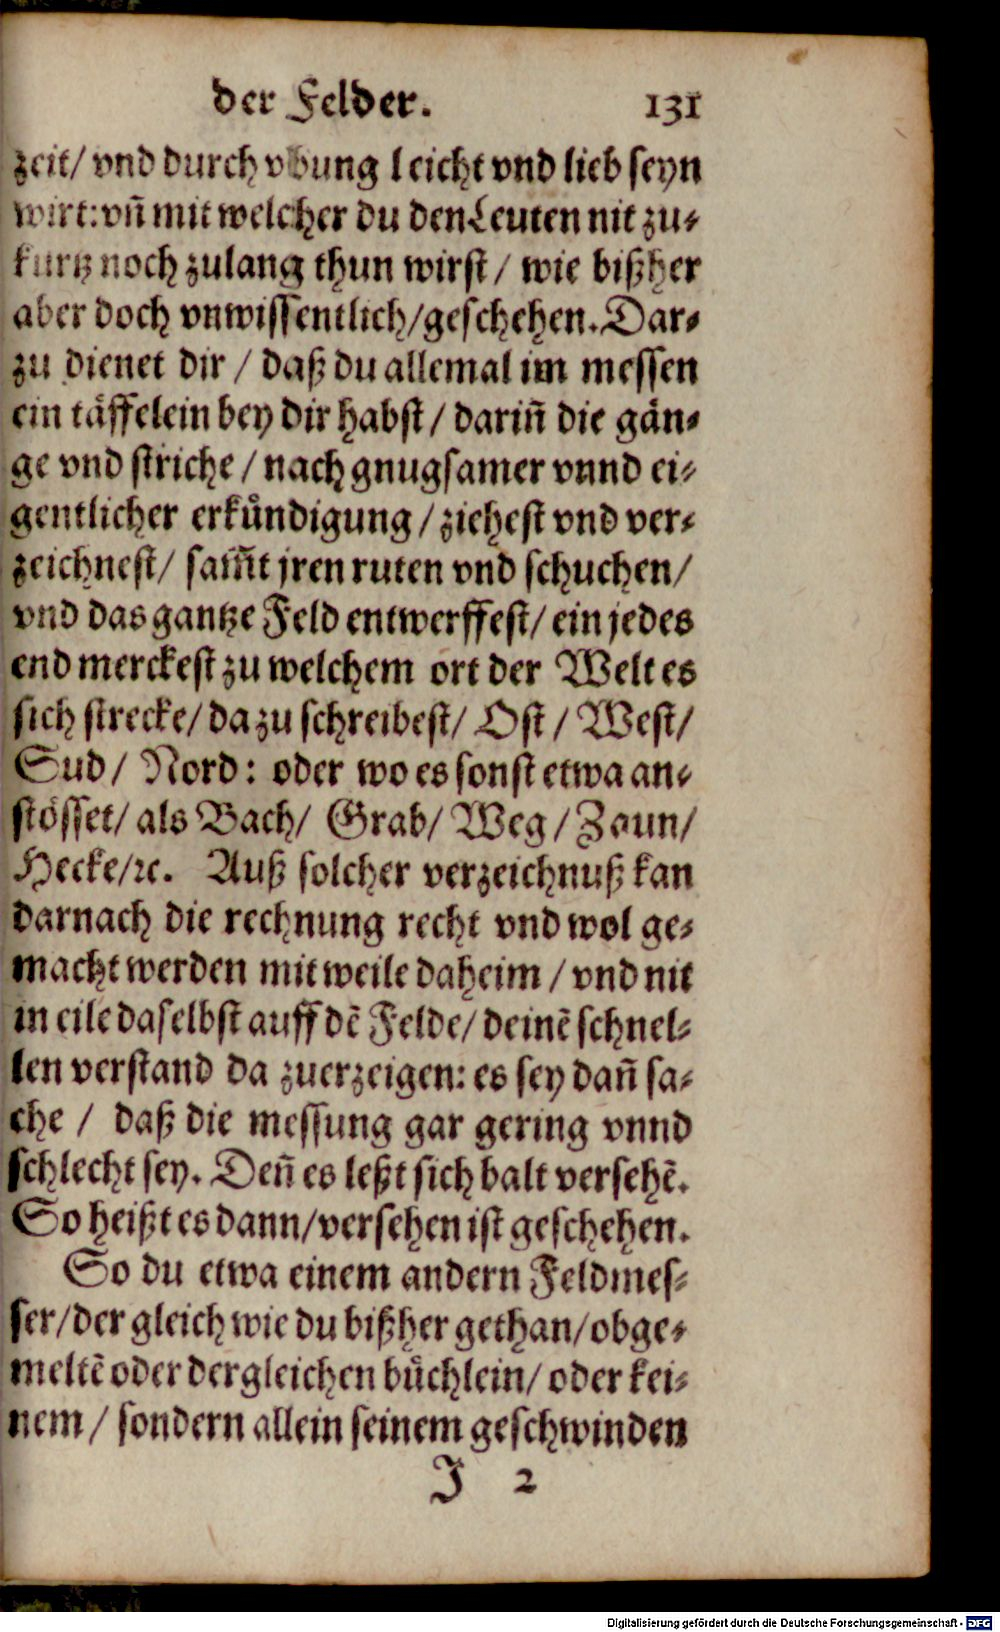 der Felder. 131
zeit/ vnd durch vbung leicht vnd lieb seyn
wirt: vñ mit welcher du den Leuten nit zu-
kurtz noch zulang thun wirst / wie bißher
aber doch vnwissentlich/geschehen. Dar-
zu dienet dir / daß du allemal im messen
ein täffelein bey dir habst / dariñ die gän-
ge vnd striche / nach gnugsamer vnnd ei-
gentlicher erkuͤndigung / ziehest vnd ver-
zeichnest/ sam̃t jren ruten vnd schuchen/
vnd das gantze Feld entwerffest/ ein jedes
end merckest zu welchem ort der Welt es
sich strecke/ da zu schreibest/ Ost / West/
Sud/ Nord: oder wo es sonst etwa an-
stösset/ als Bach/ Grab/ Weg / Zaun/
Hecke/ꝛc. Auß solcher verzeichnuß kan
darnach die rechnung recht vnd wol ge-
macht werden mit weile daheim / vnd nit
in eile daselbst auff dẽ Felde/ deinẽ schnel-
len verstand da zuerzeigen: es sey dañ sa-
che / daß die messung gar gering vnnd
schlecht sey. Deñ es leßt sich balt versehẽ.
So heißt es dann/versehen ist geschehen.
So du etwa einem andern Feldmes-
ser/der gleich wie du bißher gethan/obge-
meltẽ oder dergleichen buͤchlein/ oder kei-
nem / sondern allein seinem geschwinden
J 2
Digitalisierung gefördert durch die Deutsche Forschungsgemeinschaft - DFG